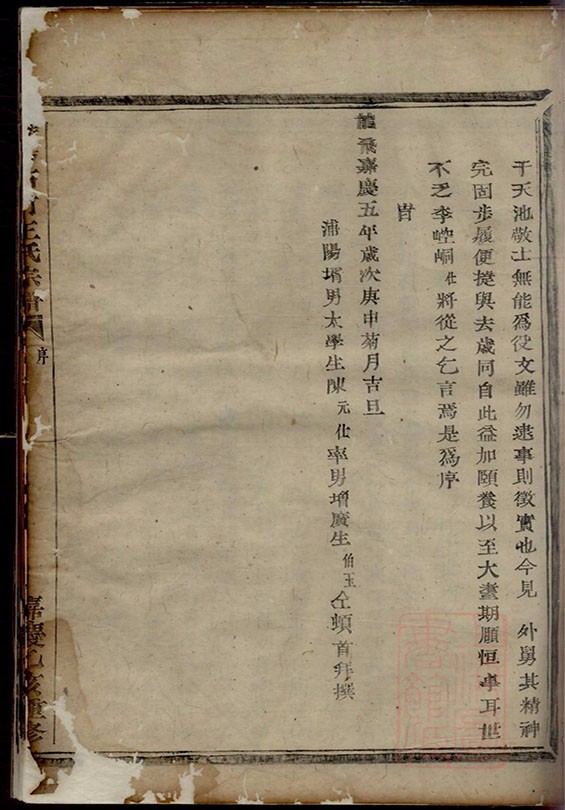 于天池敬士無能爲役文雖勿逮事則徵實也今見 外舅其精神
完固步履便捷與去歲同自此益加頤養以至大耋期頤恒事耳世
不乏李崆峒仕將從之乞言焉是爲序
旹
龍飛嘉慶五年歲次庚申菊月吉旦
浦陽壻男太學生陳元仕率男增廣生伯玉仝頓首拜撰
王氏宗譜
序
嘉慶乙亥重修